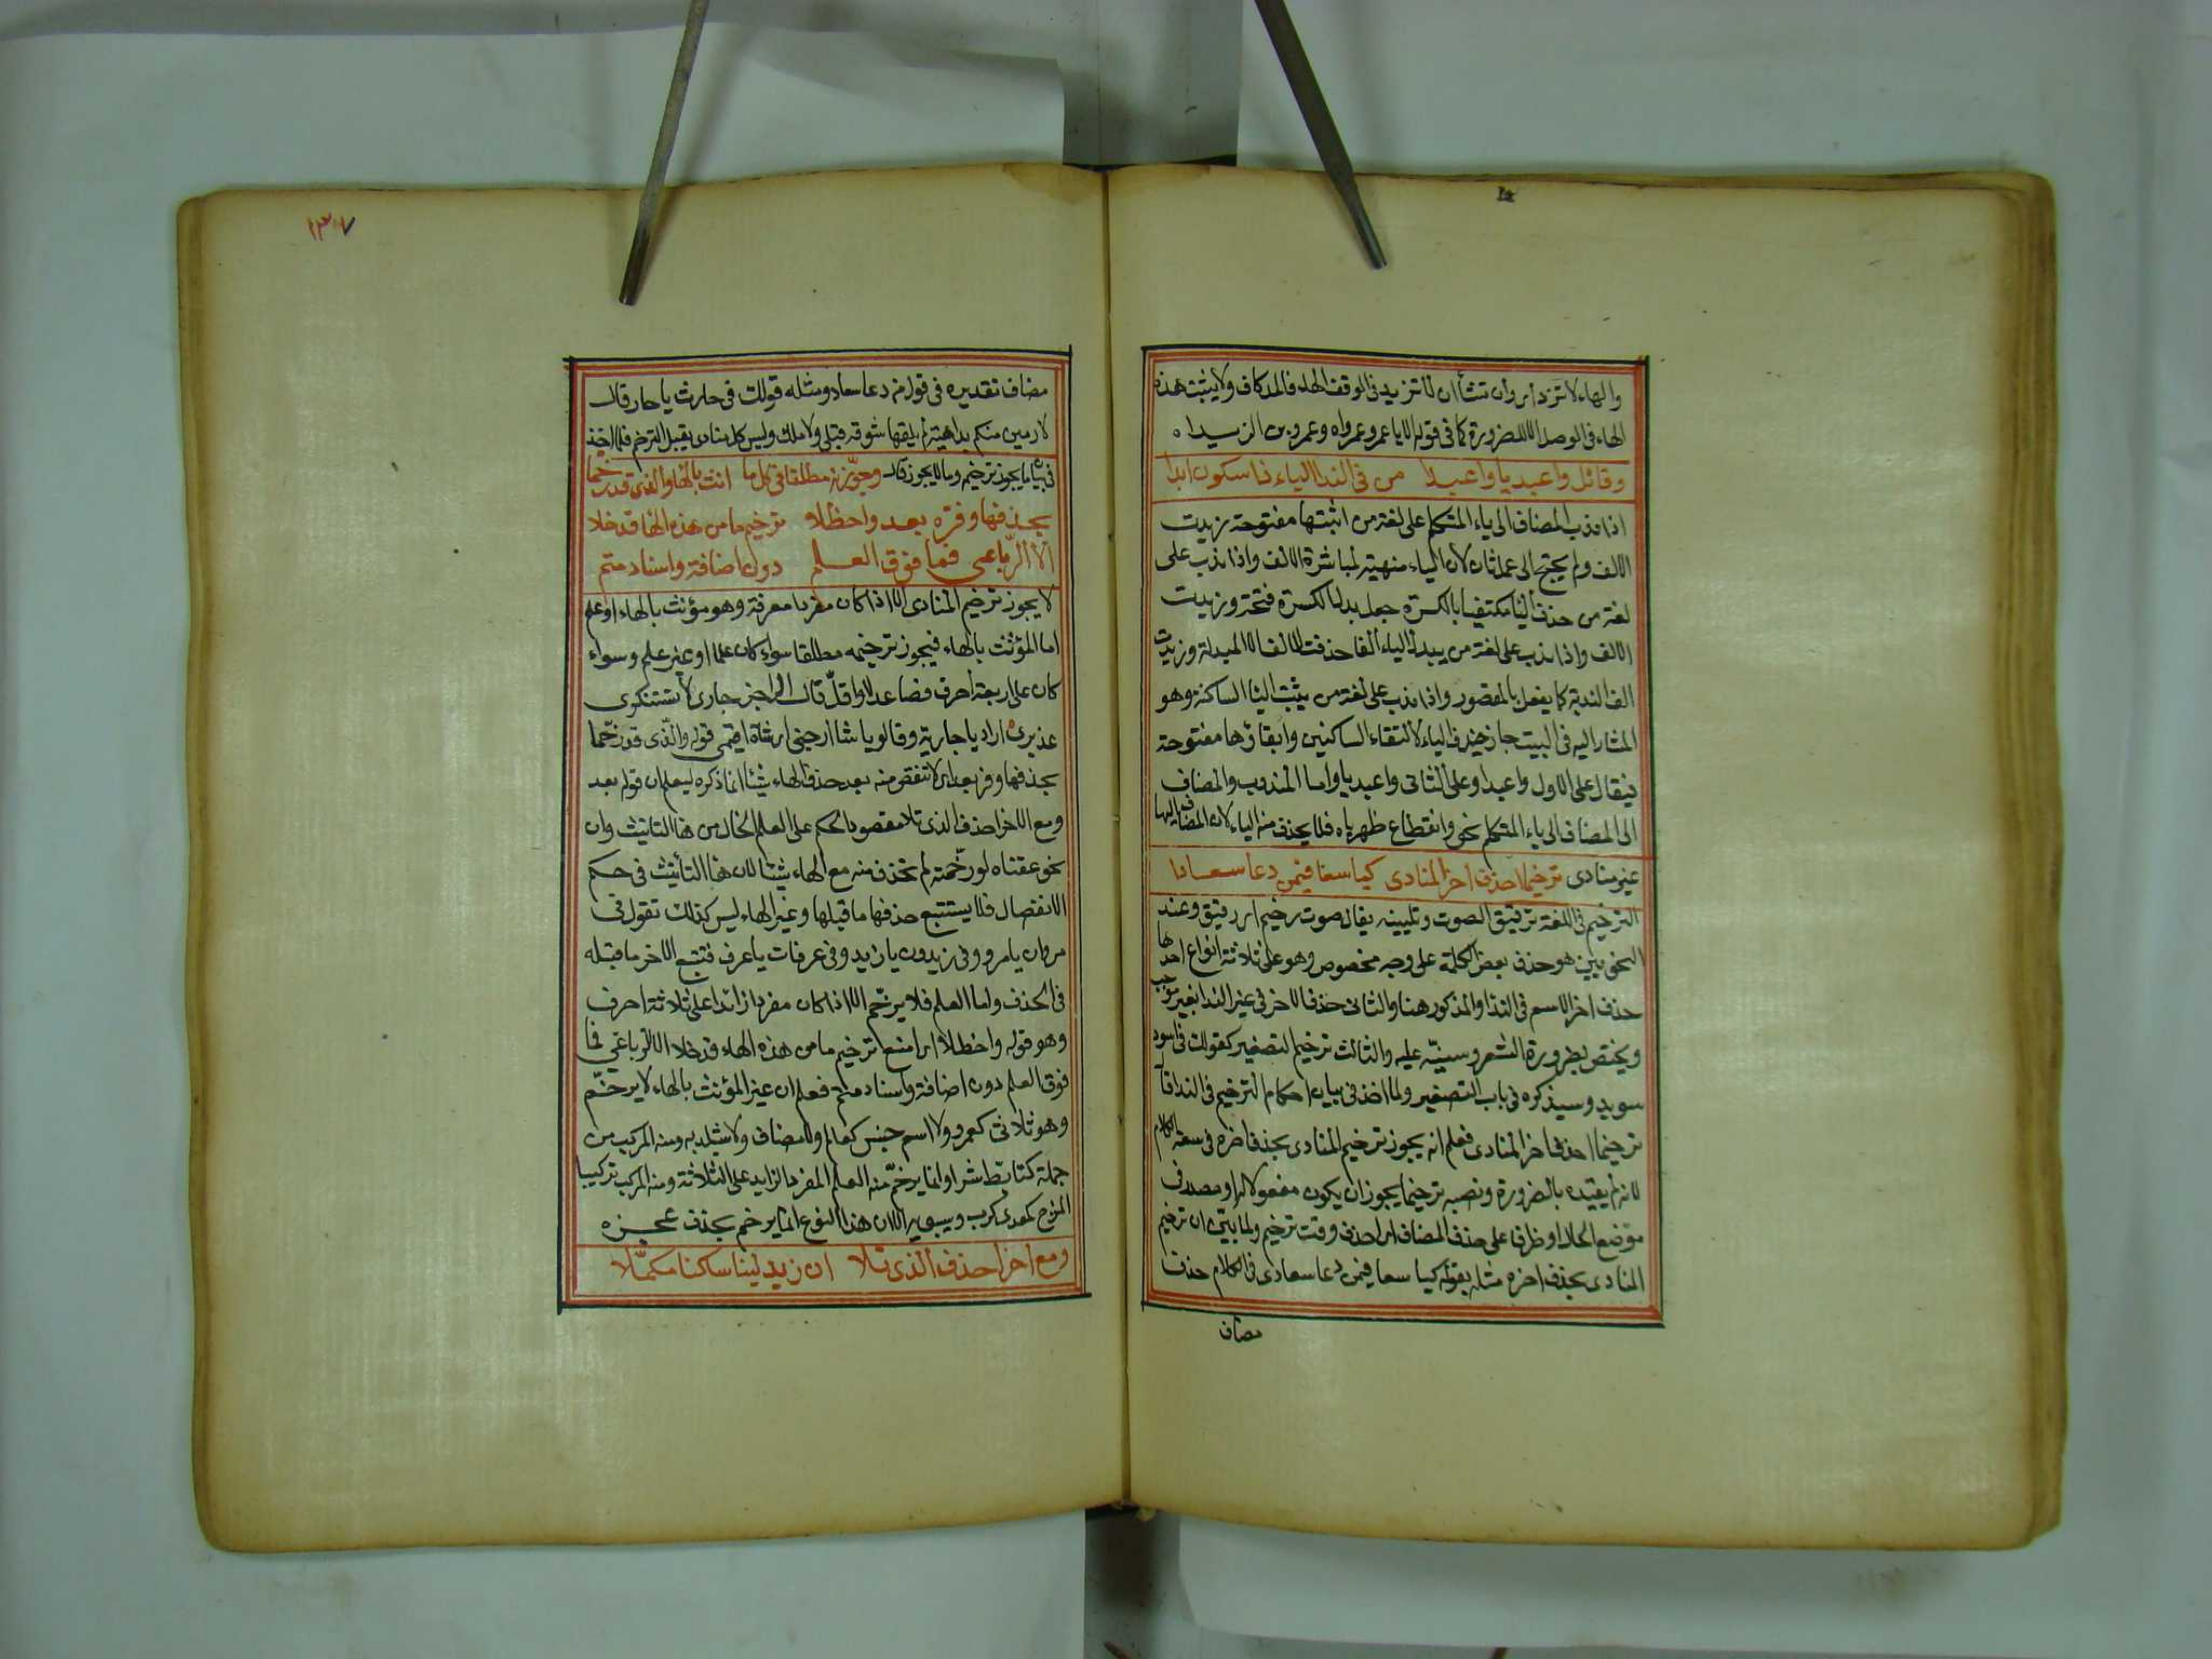 والهاء لا تزد اى وان تشأ ان لا تزيد فى الوقف الهاء فالمد كاف ولا يثبت هذه
الهاء فى الوصل الا للضرورة كما فى قوله الا يا عمرو عمراه وعمرو بن الزبيراه
وقائل واعبديا واعبدا من فى الندا الياء ذا سكون ابدا
اذا ندب المضاف الى ياء المتكلم على لغة من اثبتها مفتوحة زيدت
الالف ولم يحتج الى عمل ثان لان الياء منهية لمباشرة الالف واذا ندب على
لغة من حذف اليا مكتفيا بالكسرة جعل بدل الكسرة فتحة وزيدت
الالف واذا ندب على لغة من يبدل الياء الفا حذفت الالف المبدلة وزيدت
الف الندبة كما يفعل بالمقصور واذا ندب على لغة من يثبت اليا الساكنة وهو
المشار اليه فى البيت جاز حذف الياء لالتقاء الساكنين وابقاؤها مفتوحة
فيقال على الاول واعبدا وعلى الثانى واعبديا واما المندوب والمضاف
الى المضاف الى ياء المتكلم نحو وانقطاع ظهرياه فلا يحذف منه الياء لان المضاف اليها
غير منادى ترخيما احذف اخر المنادى كيا سعا فيمن دعا سعادا
الترخيم فى اللغة ترقيق الصوت وتليينه يقال صوت رخيم اى رقيق وعند
النحويين هو حذف بعض الكلمة على وجه مخصوص وهو على ثلاثة انواع احدها
حذف اخر الاسم فى الندا والمذكور هنا والثانى حذف الاخر فى غير الندا بغير موجب
ويختص بضرورة الشعر وسينبه عليه والثالث ترخيم التصغير كقولك فى اسود
سويد وسيذكره فى باب التصغير ولما اخذ فى بيان احكام الترخيم فى الندا قال
ترخيما احذف اخر المنادى فعلم انه يجوز ترخيم المنادى بحذف اخره فى سعة الكلام
لانه لم يقيده بالضرورة ونصبه ترخيما يجوز ان يكون مفعولا له او مصدر فى
موضع الحال او ظرفا على حذف المضاف اى احذف وقت ترخيم ولما بين ان ترخيم
المنادى بحذف اخره مثله بقوله كيا سعا فيمن دعا سعادى فى الكلام حذف
مضاف
١٣٧
مضاف تقديره فى قول من دعا سعاد ومثله قولك فى حارث يا حار قال
لا ارمين منكم بداهية لم يلقها سوقة قبلى ولا ملك وليس كل منادى يقبل الترخيم فلما اخذ
فى بيان ما يجوز ترخيمه وما لا يجوز قال وجوّزنه مطلقا فى كل ما انث بالها والذى قد رخما
بحذفها وفره بعد واحظلا ترخيم ما من هذه الها قد خلا
الا الرباعى فما فوق العلم دون اضافة واسناد متم
لا يجوز ترخيم المنادى الا اذا كان مفردا معرفة وهو مؤنث بالهاء او علم
اما المؤنث بالهاء فيجوز ترخيمه مطلقا سواء كان علما او غير علم وسواء
كان على اربعة احرف فصاعدا او اقل قال الراجز جارى لا تستنكرى
عذيرى اراد يا جارية وقالو يا شا ارجنى اى شاة اقيمى قوله والذى قد رخما
بحذفها وفره بعد اى لا تنقص منه بعد حذف الهاء شيئا انما ذكره ليعلم ان قوله بعد
ومع الاخر احذف الذى تلا مقصود الحكم على العلم الخالى من ها التانيث وان
نحو عقنباه لو رخمته لم تحذف منه مع الهاء شيئا لان ها التأنيث فى حكم
الانفصال فلا يستتبع حذفها ما قبلها وغير الهاء ليس كذلك تقول فى
مروان يا مرو وفى زيدون يا زيد وفى عرفات يا عرف فتتبع الاخر ما قبله
فى الحذف واما العلم فلا يرخم الا اذا كان مفردا زائدا على ثلاثة احرف
وهو قوله واحظلا اى امنع ترخيم ما من هذه الهاء قد خلا الا الرباعى فما
فوق العلم دون اضافة واسناد متم فعلم ان غير المؤنث بالهاء لا يرخم
وهو ثلاثى كعمر ولا اسم جنس كعالم ولا مضاف ولا شبيه به ومنه المركب من
جملة كتابط شرا وانما يرخم منه العلم المفرد الزايد على الثلاثة ومنه المركب تركيب
المزج كمعدى كرب وسيبويه الا ان هذا النوع انما يرخم بحذف عجزه
ومع اخرا حذف الذى تلا ان زيد لينا ساكنا مكملا